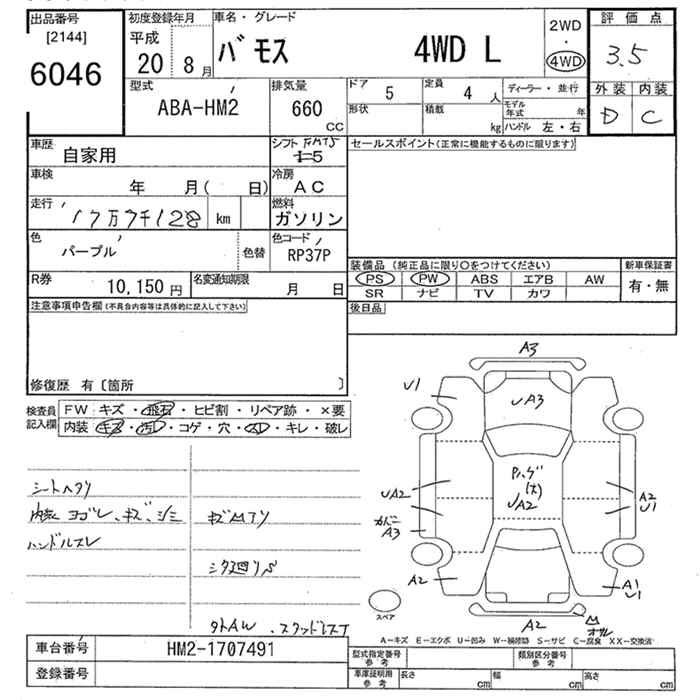 出品番号 初度登録年月 車名・グレード 2WD 評価点
[2144] 平成 バモス 4WD L ・ 3.5
6046 20 8月 4WD
型式 排気量 ドア 5 定員 4人 ディーラー・並行 外装 内装
ABA-HM2 660 CC 形状 積載 kg モデル年式 年 D C
ハンドル 左・右
車歴 自家用 シフト 5 セールスポイント(正常に機能するものに限ります)
車検 年 月( 日) 冷房 AC
走行 17万7千128 km 燃料 ガソリン
色 パープル 色替 色コード RP37P
装備品 (純正品に限り○をつけてください) 新車保証書
R券 10,150円 名変通知期限 月 日 PS PW ABS エアB AW 有・無
SR ナビ TV カワ
注意事項申告欄(不具合内容等は具体的に記入して下さい) 後日品
修復歴 有〔箇所 〕
検査員記入欄 FW キズ・飛石・ヒビ割・リペア跡・×要
内装 キズ・汚レ・コゲ・穴・スレ・キレ・破レ
A3
U1
UA3
UA2
A2
U1
カバー
A3
UA2
A2
A1
U1
A2
シートヘタリ
内装ヨゴレ、キズ、シミ
ハンドルスレ
シタ廻りサビ
スペア
A-キズ E-エクボ U-凹み W-補修跡 S-サビ C-腐食 XX-交換済
車台番号 HM2-1707491 型式指定番号 参考 類別区分番号 参考
登録番号 車庫証明用 参考 長さ cm 幅 cm 高さ cm